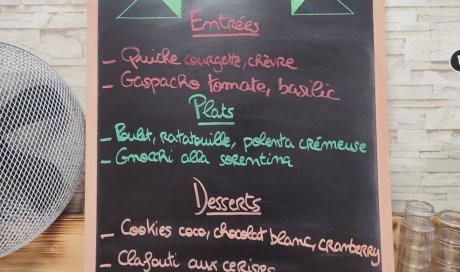 Entrées
- Quiche courgette, chèvre
- Gaspacho tomate, basilic
Plats
- Poulet, ratatouille, polenta crémeuse
- Gnocchi alla sorentina
Desserts
- Cookies coco, chocolat blanc, cranberry
- Clafouti aux cerises